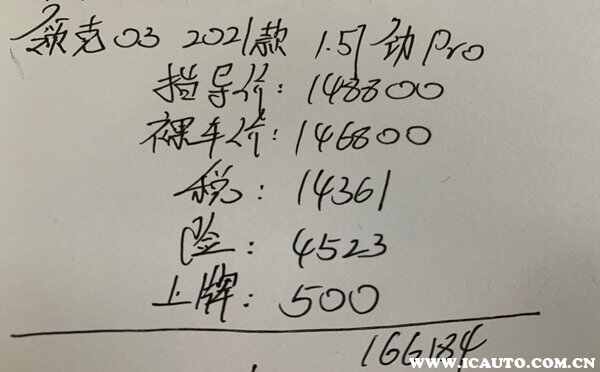 领克03 2021款 1.5T劲Pro
指导价：148800
裸车价：146800
税：14361
险：4523
上牌：500
166184
WWW.ICAUTO.COM.CN